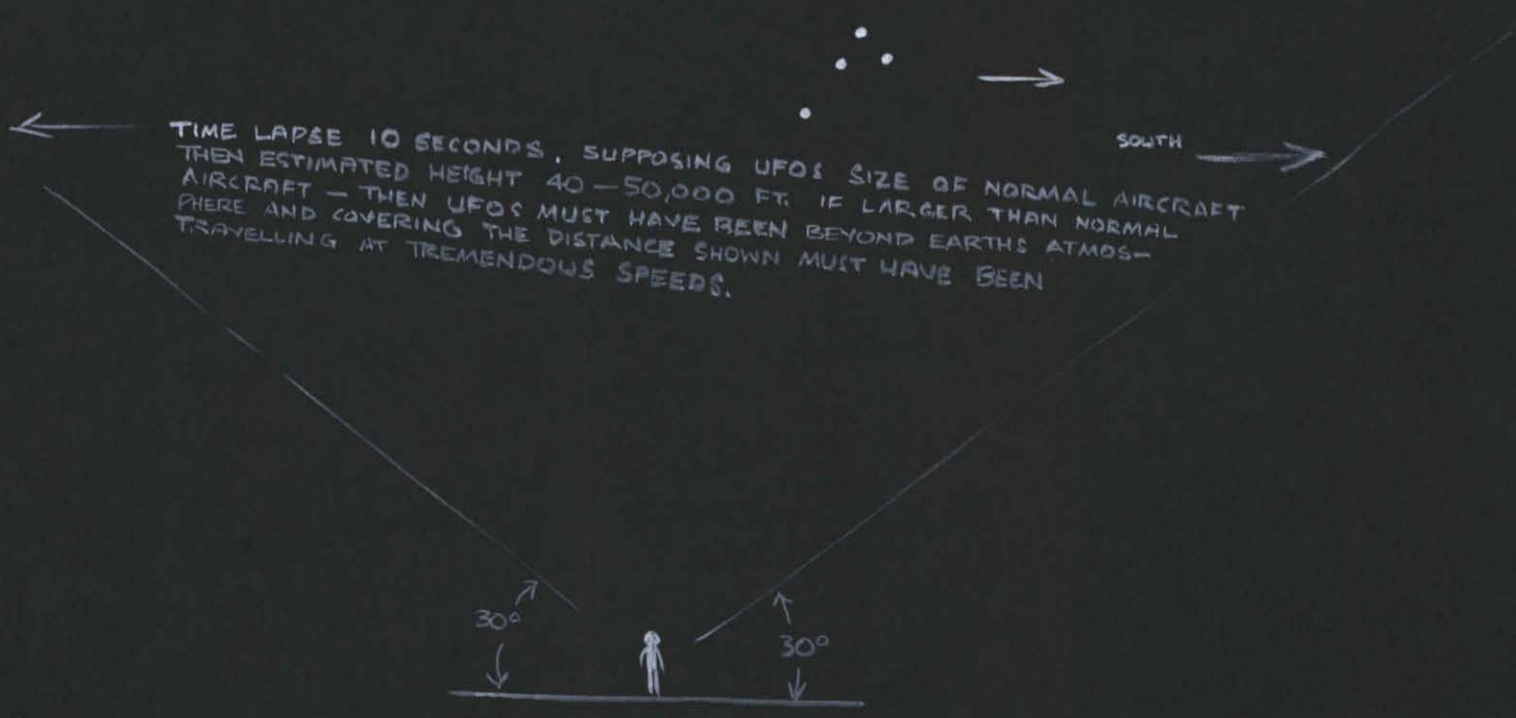 TIME LAPSE 10 SECONDS. SUPPOSING UFOS SIZE OF NORMAL AIRCRAFT
THEN ESTIMATED HEIGHT 40 — 50,000 FT. IF LARGER THAN NORMAL
AIRCRAFT — THEN UFOS MUST HAVE BEEN BEYOND EARTHS ATMOS-
PHERE AND COVERING THE DISTANCE SHOWN MUST HAVE BEEN
TRAVELLING AT TREMENDOUS SPEEDS.
SOUTH
30°
30°